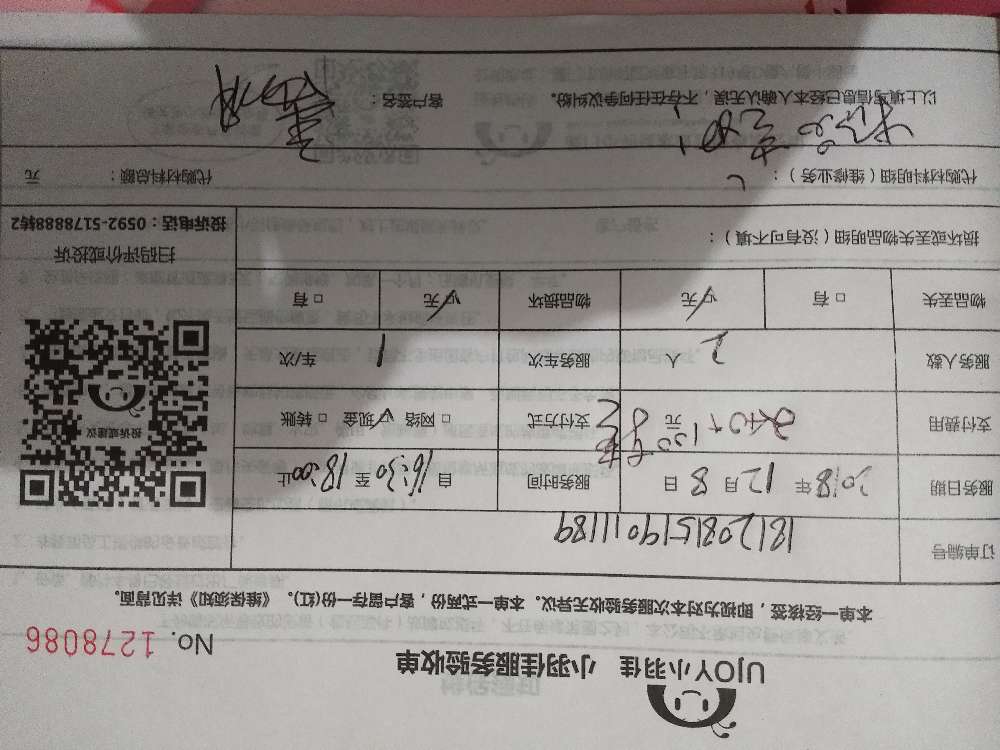 UJOY小羽佳 小羽佳服务验收单
No. 1278086
一单一经核签，即视为对本次服务验收无异议。本单一式两份，客户留存一份(红)。《维保须知》详见背面。
订单编号 181208151901189
服务日期 2018年 12月 8日 服务时间 自16:30至18:00止
支付费用 340+150 元 支付方式 □ 网络 ☑ 现金 □ 转账
服务人数 2 人 服务车次 1 车/次
物品丢失 □ 有 ☑ 无 物品损坏 ☑ 无 □ 有
投诉或建议
扫码评价或投诉
投诉电话：0592-5178888转2
损坏或丢失物品明细（没有可不填）：
代购材料明细（维修业务）： 代购材料总额： 元
以上填写信息已经本人确认无误，不存在任何争议纠纷。 客户签名：